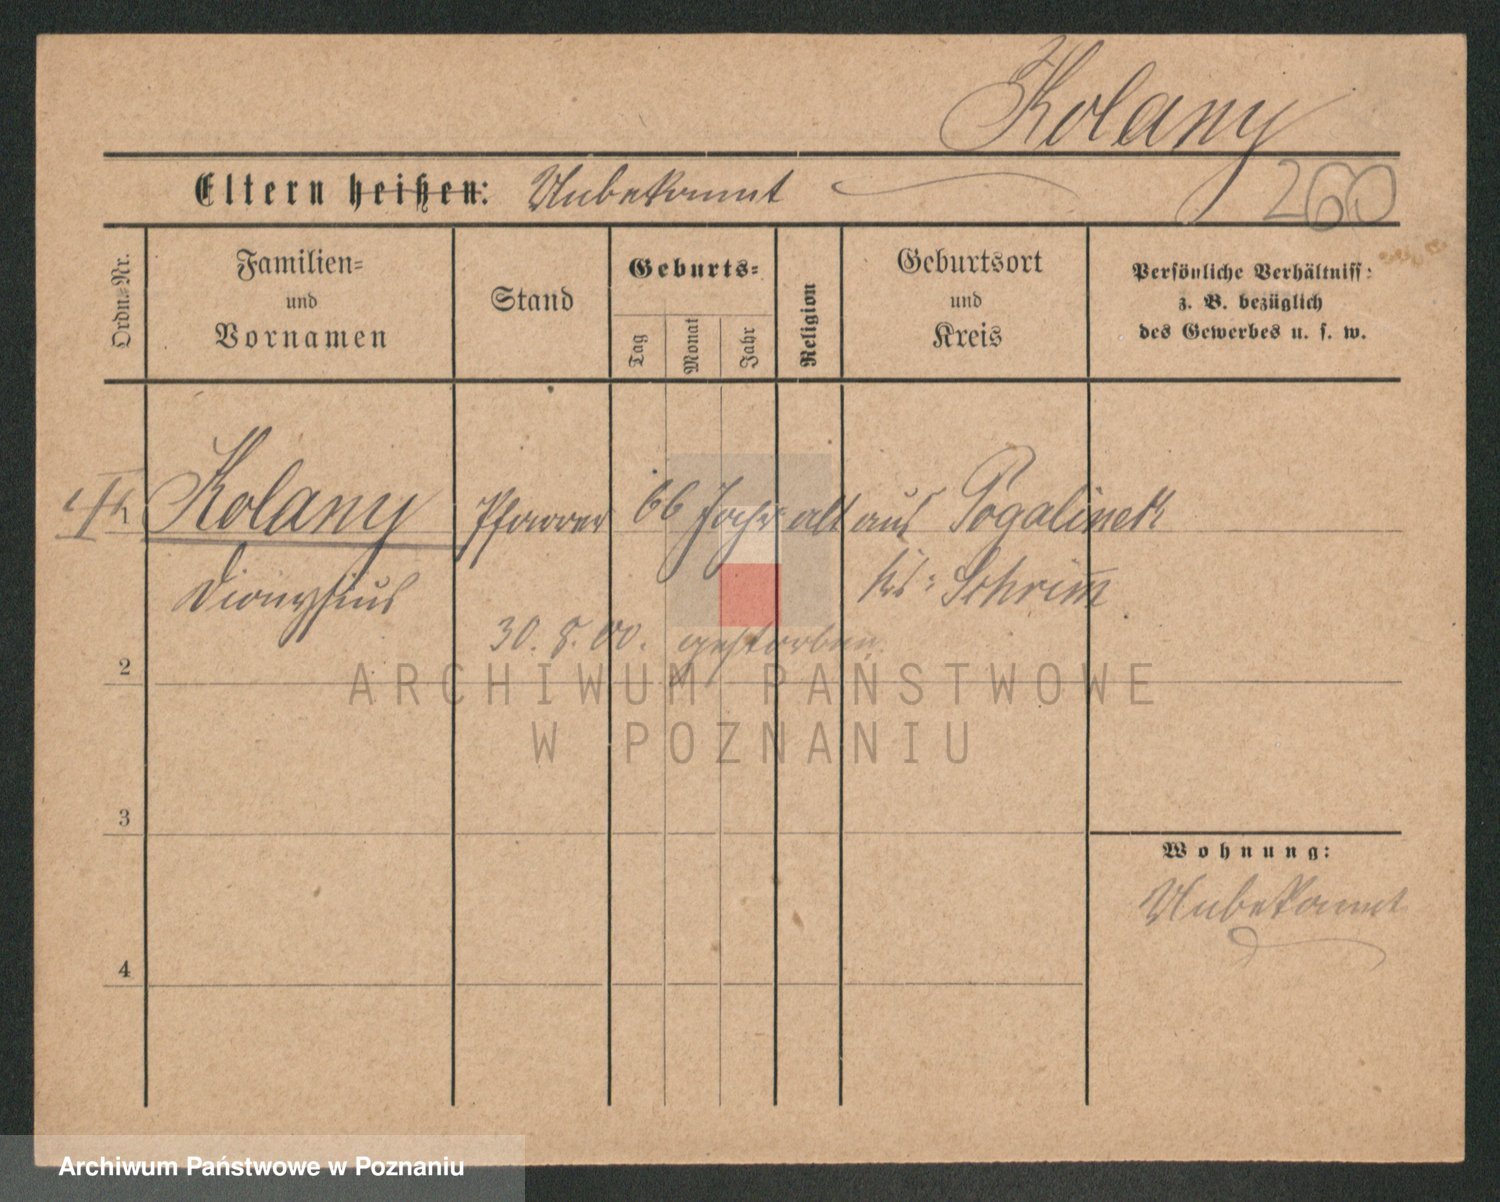 Kolany
Eltern heißen: Unbekannt
260
Ordn.-Nr.
Familien-
und
Vornamen
Stand
Geburts-
Tag
Monat
Jahr
Religion
Geburtsort
und
Kreis
Persönliche Verhältniss:
z. B. bezüglich
des Gewerbes u. s. w.
1
Kolany Pfarrer 66 Jahr alt aus Pogalinek
Dionysius Krs: Schrimm
30. 8. 00. gestorben.
2
ARCHIWUM PAŃSTWOWE
W POZNANIU
3
Wohnung:
Unbekannt
4
Archiwum Państwowe w Poznaniu